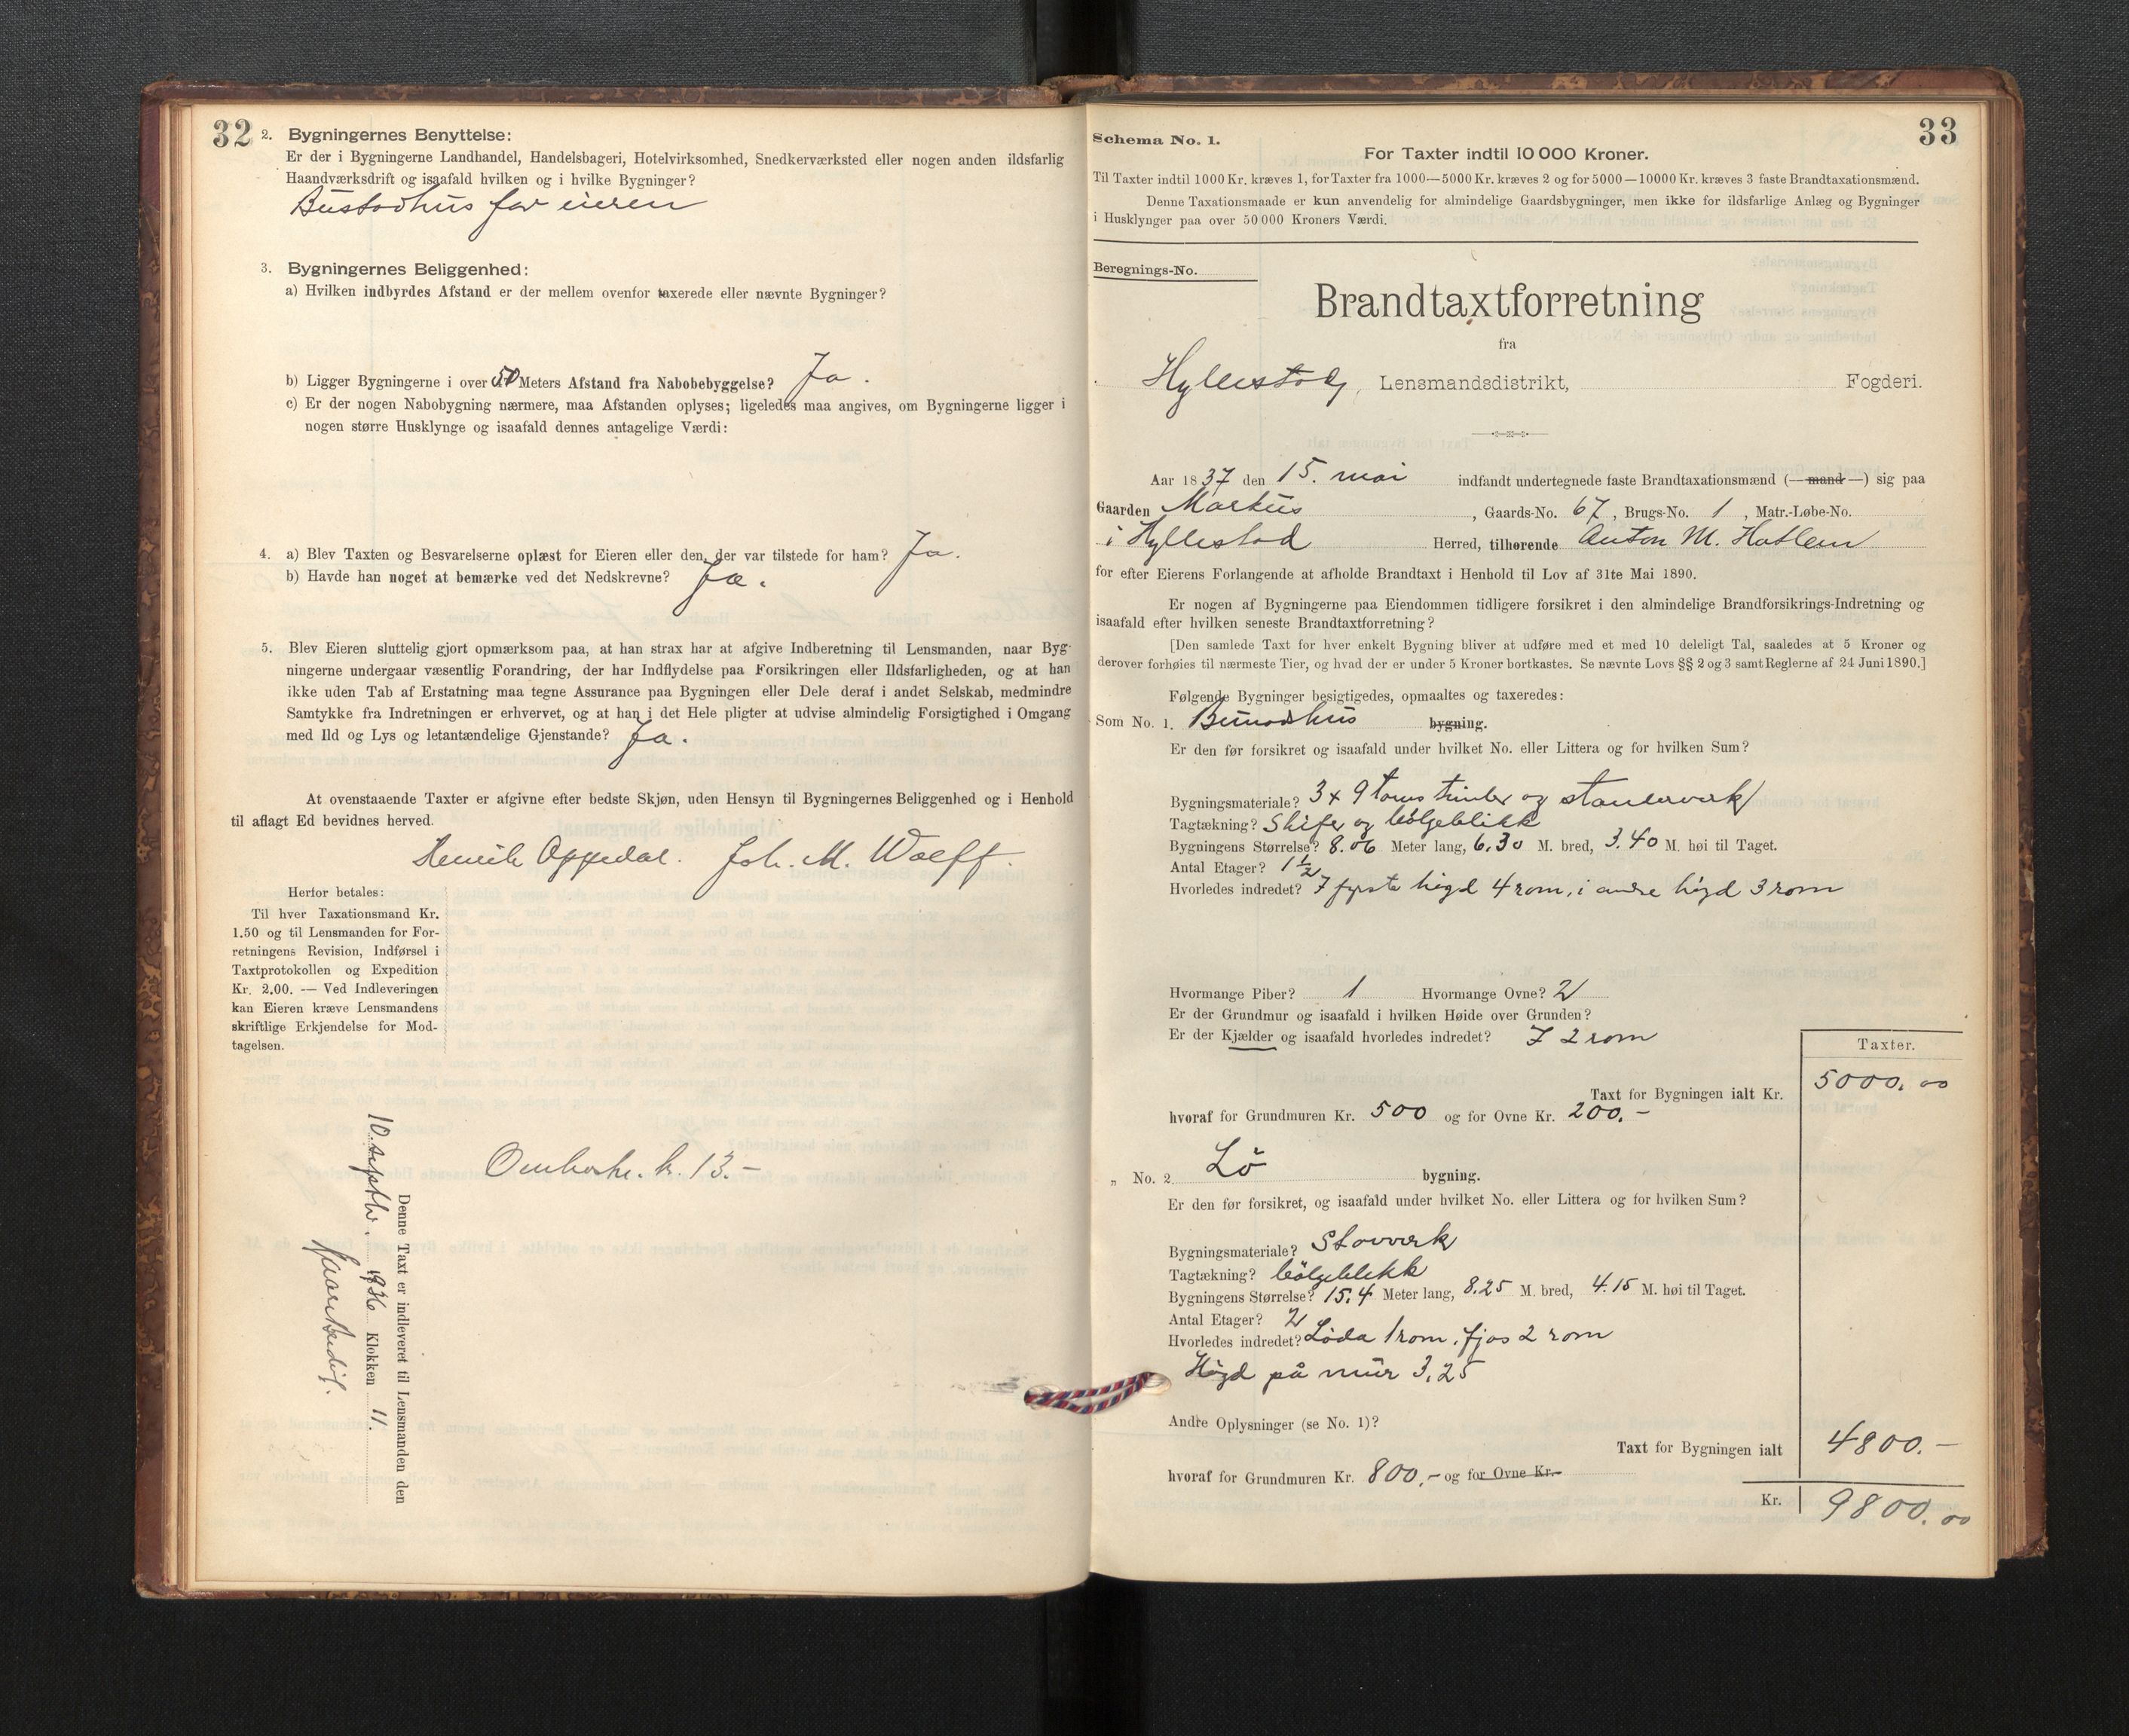 32
2. Bygningernes Benyttelse:
Er der i Bygningerne Landhandel, Handelsbageri, Hotelvirksomhed, Snedkerværksted eller nogen anden ildsfarlig
Haandværksdrift og isaafald hvilken og i hvilke Bygninger?
Bustadhus for eieren
3. Bygningernes Beliggenhed:
a) Hvilken indbyrdes Afstand er der mellem ovenfor taxerede eller nævnte Bygninger?
b) Ligger Bygningerne i over 50 Meters Afstand fra Nabobebyggelse? Ja.
c) Er der nogen Nabobygning nærmere, maa Afstanden oplyses; ligeledes maa angives, om Bygningerne ligger i
nogen større Husklynge og isaafald dennes antagelige Værdi:
4. a) Blev Taxten og Besvarelserne oplæst for Eieren eller den, der var tilstede for ham? Ja.
b) Havde han noget at bemærke ved det Nedskrevne? Ja.
5. Blev Eieren sluttelig gjort opmærksom paa, at han strax har at afgive Indberetning til Lensmanden, naar Byg-
ningerne undergaar væsentlig Forandring, der har Indflydelse paa Forsikringen eller Ildsfarligheden, og at han
ikke uden Tab af Erstatning maa tegne Assurance paa Bygningen eller Dele deraf i andet Selskab, medmindre
Samtykke fra Indretningen er erhvervet, og at han i det Hele pligter at udvise almindelig Forsigtighed i Omgang
med Ild og Lys og letantændelige Gjenstande? Ja.
At ovenstaaende Taxter er afgivne efter bedste Skjøn, uden Hensyn til Bygningernes Beliggenhed og i Henhold
til aflagt Ed bevidnes herved.
Henrik Oppedal. Joh. M. Wolff.
Herfor betales:
Til hver Taxationsmand Kr.
1.50 og til Lensmanden for For-
retningens Revision, Indførsel i
Taxtprotokollen og Expedition
Kr. 2,00. — Ved Indleveringen
kan Eieren kræve Lensmandens
skriftlige Erkjendelse for Mod-
tagelsen.
kr. 13.-
Denne Taxt er indleveret til Lensmanden den
10. septbr. 1936 Klokken 11.
33
Schema No. 1.
For Taxter indtil 10 000 Kroner.
Til Taxter indtil 1000 Kr. kræves 1, for Taxter fra 1000—5000 Kr. kræves 2 og for 5000—10000 Kr. kræves 3 faste Brandtaxationsmænd.
Denne Taxationsmaade er kun anvendelig for almindelige Gaardsbygninger, men ikke for ildsfarlige Anlæg og Bygninger
i Husklynger paa over 50 000 Kroners Værdi.
Beregnings-No.
Brandtaxtforretning
fra
Hyllestad, Lensmandsdistrikt, Fogderi.
Aar 1837 den 15. mai indfandt undertegnede faste Brandtaxationsmænd (—mand—) sig paa
Gaarden Markus, Gaards-No. 67, Brugs-No. 1, Matr.-Løbe-No.
i Hyllestad Herred, tilhørende Anton M. Hatlem
for efter Eierens Forlangende at afholde Brandtaxt i Henhold til Lov af 31te Mai 1890.
Er nogen af Bygningerne paa Eiendommen tidligere forsikret i den almindelige Brandforsikrings-Indretning og
isaafald efter hvilken seneste Brandtaxtforretning?
[Den samlede Taxt for hver enkelt Bygning bliver at udføre med et med 10 deleligt Tal, saaledes at 5 Kroner og
derover forhøies til nærmeste Tier, og hvad der er under 5 Kroner bortkastes. Se nævnte Lovs §§ 2 og 3 samt Reglerne af 24 Juni 1890.]
Følgende Bygninger besigtigedes, opmaaltes og taxeredes:
Som No. 1. bygning.
Er den før forsikret og isaafald under hvilket No. eller Littera og for hvilken Sum?
Bygningsmateriale? 3 x 9 toms timber og standerverk
Tagtækning? Skifer og bölgeblikk
Bygningens Størrelse? 8.06 Meter lang, 6,30 M. bred, 3.40 M. høi til Taget.
Antal Etager? 1 1/2
Hvorledes indredet? I fyrste högd 4 rom, i andre högd 3 rom
Hvormange Piber? 1 Hvormange Ovne? 2
Er der Grundmur og isaafald i hvilken Høide over Grunden?
Er der Kjælder og isaafald hvorledes indredet? I 2 rom
Taxter.
Taxt for Bygningen ialt Kr. 5000.00
hvoraf for Grundmuren Kr. 500 og for Ovne Kr. 200.-
„ No. 2 Lö bygning.
Er den før forsikret, og isaafald under hvilket No. eller Littera og for hvilken Sum?
Bygningsmateriale? Stavverk
Tagtækning? bölgeblikk
Bygningens Størrelse? 15,4 Meter lang, 8.25 M. bred, 4.15 M. høi til Taget.
Antal Etager? 2
Hvorledes indredet? Löda 1 rom, fjos 2 rom
Högd på mur 3,25
Andre Oplysninger (se No. 1)?
Taxt for Bygningen ialt 4800.-
hvoraf for Grundmuren Kr. 800,- og for Ovne Kr.-
Kr. 9800.00